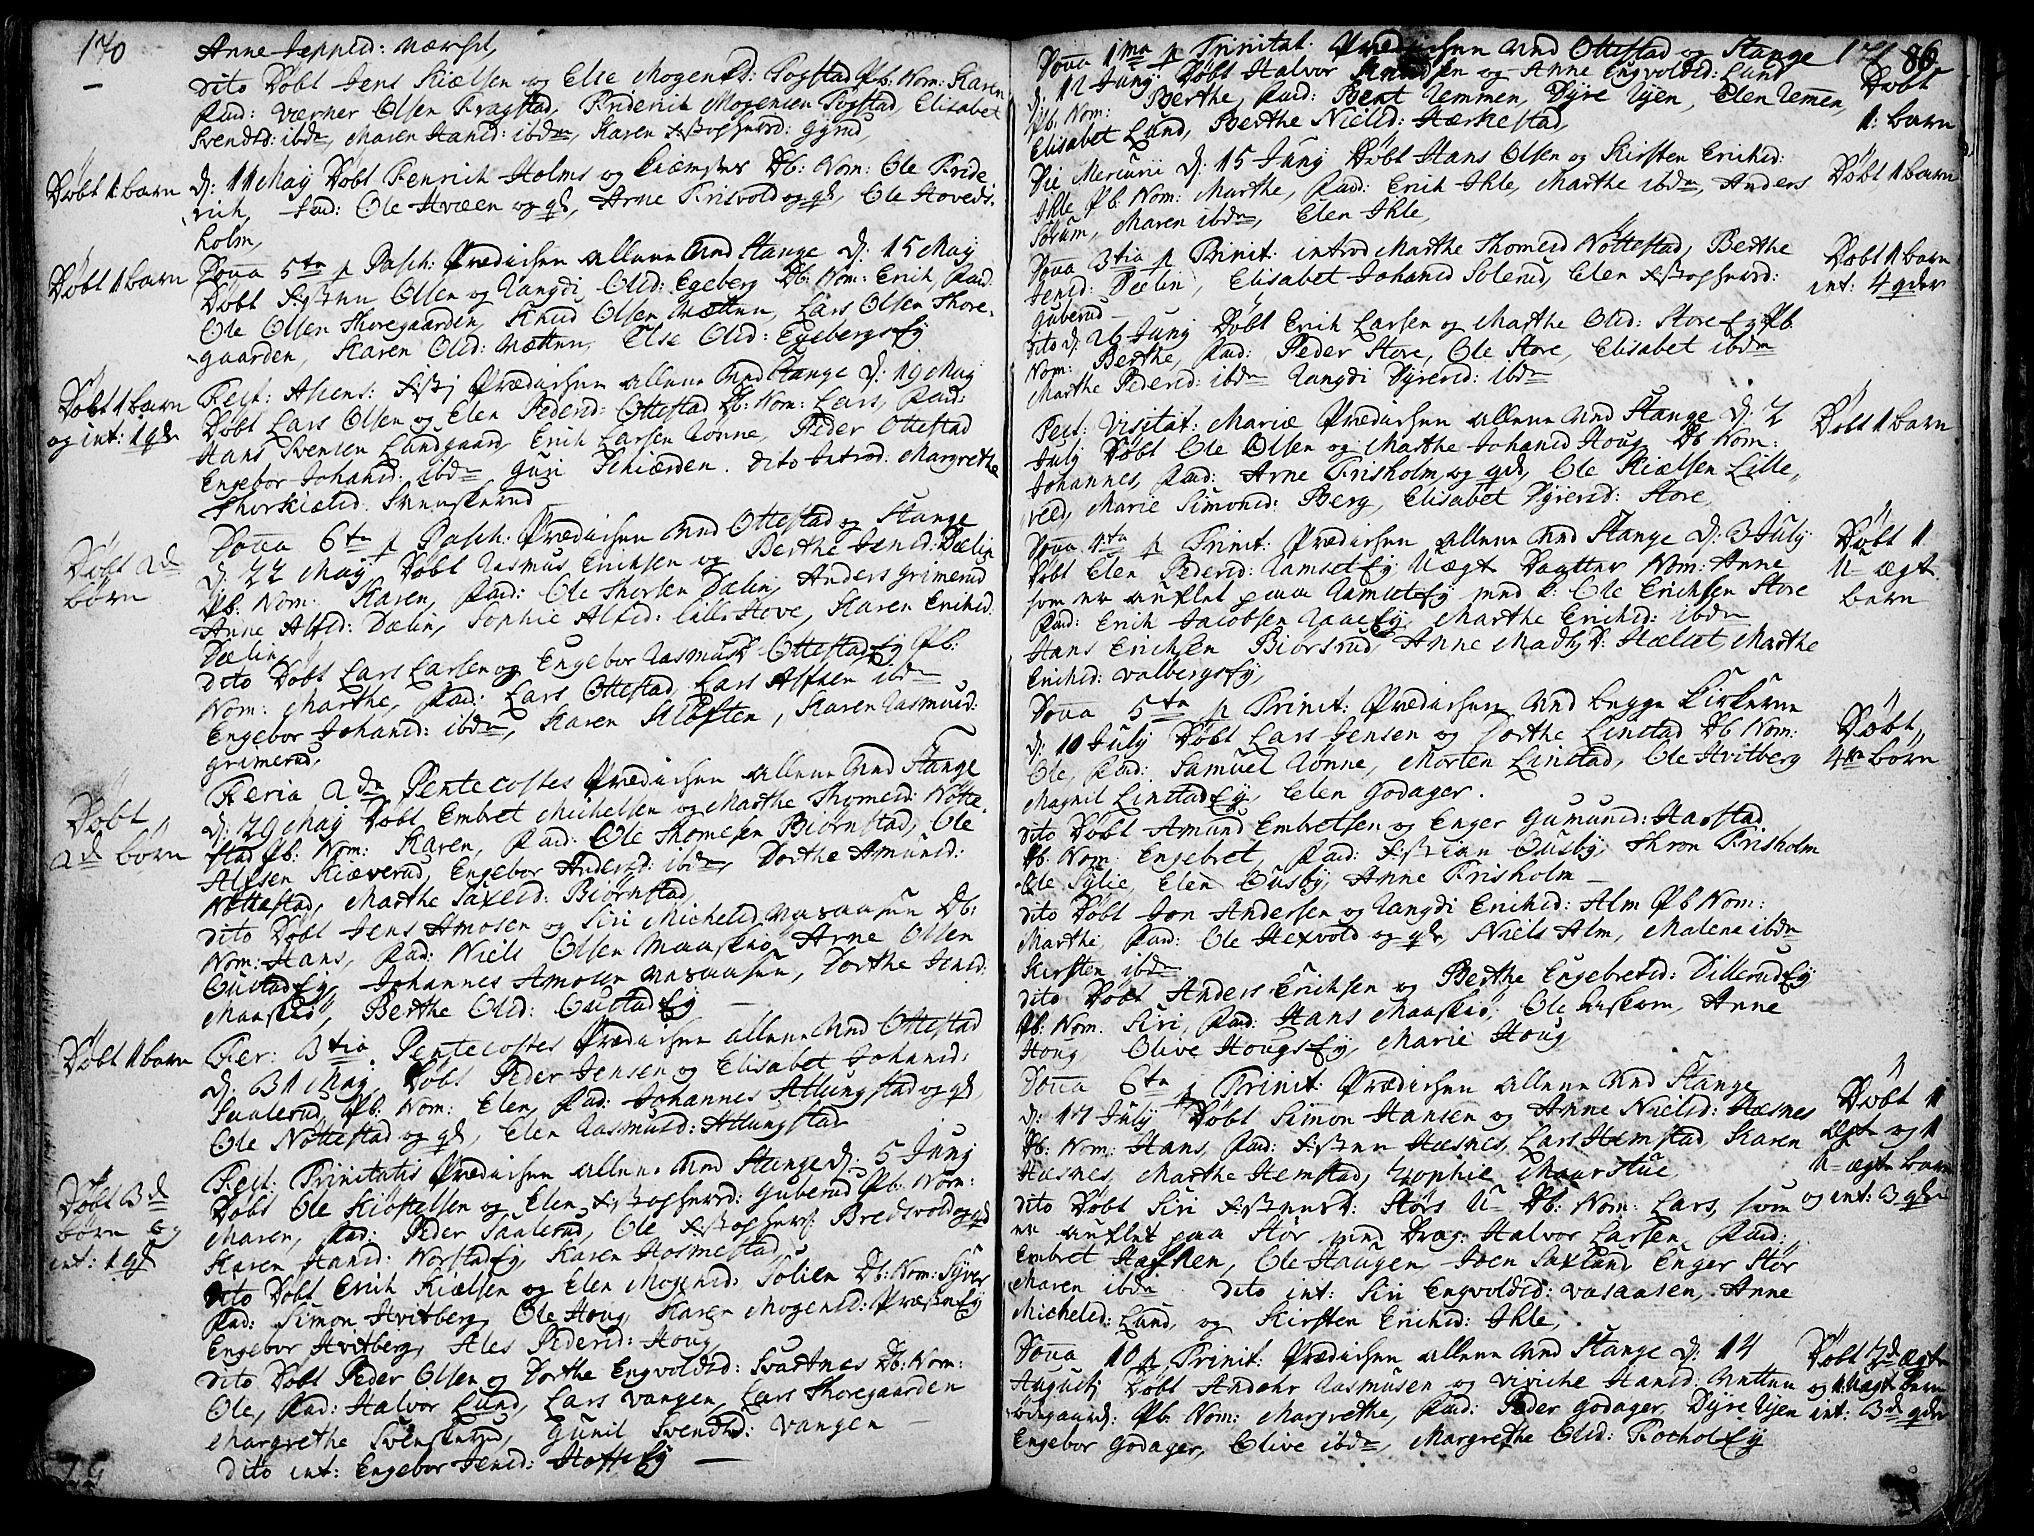 170
Anne Jeppesd: Nærset,
dito Døbt Jens Kielsen og Else Mogensd: Togstad Pb: Nom: Karen
Fad: Værner Olsen Kragstad, Friderich Mogensen Togstad, Elisabet
Svendsd: ibdm, Maren Hansd: ibdm, Karen
Døbt 1 barn
d: 11 Maij Døbt Henrich Holms og Db: Nom: Ole Fride
rich, Fad: Ole Hvæen og qd, Arne Frisvold og qd, Ole Hoveds:
holm,
Døbt 1 barn
Dõna 5ta p Pasch: Prædichen allene ved Stange d: 15 Maij
Døbt Olsen og Rangdi Olsd: Egeberg Db: Nom: Erich, Fad:
Ole Olsen Thoregaarden, Knud Olsen Mætten, Lars Olsen Thore-
gaarden, Karen Olsd: Mætten, Else Olsd: Egebergs Ey
Døbt 1 barn
og int: 1 qd
Fest: Ascens: Prædichen allene ved Stange d: 19 Maij
Døbt Lars Olsen og Elen Pedersd: Ottestad Db: Nom: Lars, Fad:
Hans Svensen Lundgaard, Erich Larsen Rønne, Peder Ottestad
Engebor Johansd: ibdm Guri Skiærden. dito introd: Margrethe
Thorkielsd: Svenskerud
Døbt 2de
børn
Dõna 6ta p Pasch: Prædichen ved Ottestad og Stange
d: 22 Maij Døbt Rasmus Erichsen og Berthe Jensd: Dælin
Pb: Nom: Karen, Fad: Ole Thorsen Dælin, Anders Grimerud
Anne Alfsd: Dælin, Sophie Alfsd: Lille Hove, Karen Erichsd:
Dælin
dito Døbt Lars Larsen og Engebor Rasmusd: Ottestad Ey Pb:
Nom: Marthe, Fad: Lars Ottestad, Lars Alfsen ibdm
Engebor Johansd: ibdm, Karen Kløften, Karen Rasmusd:
Grimerud,
Døbt
2de børn
Feria 2da Pentecostes Prædichen allene ved Stange
d: 29 Maij Døbt Embret Michelsen og Marthe Thomesd: Nøtte-
stad Pb: Nom: Karen, Fad: Ole Thomesen Biørnstad, Ole
Alfsen Kiæverud, Engebor Andersd: ibdm, Dorthe Amundsd:
Nøttestad, Marthe Saxesd: Biørnstad,
dito Døbt Jens Amosen og Siri Michelsd Vasaasen Db:
Nom: Hans, Fad: Niels Olsen Maaskio, Arne Olsen
Oustad Ey, Johannes Amosen Vasaasen, Dorthe Jensd:
Maaskiø, Berthe Olsd: Oustad Ey
Døbt 1 barn
Fer: 3tia Pentecostes Prædichen allene ved Ottestad
d: 31 Maij Døbt Peder Jensen og Elisabet Johansd:
Saalerud, Pb: Nom: Elen, Fad: Johannes Atlungstad og qd,
Ole Nøttestad og qd, Elen Rasmusd: Atlungstad
Døbt 3de
børn og
int: 1 qd
Fest: Trinitatis Prædichen allene ved Stange d: 5 Junij
Døbt Ole Kiøstelsen og Elen Guberud Pb: Nom:
Maren, Fad: Peder Saalerud, Ole Bredsvold og qd
Karen Hansd: Norstad Ey, Karen Hosmestad,
dito Døbt Erich Kielsen og Elen Mogensd: Solien Db: Nom: Syver
Fad: Simon Hvitberg, Ole Houg, Karen Mogensd:
Engebor Hvitberg, Ales Pedersd: Houg
dito Døbt Peder Olsen og Dorthe Engvoldsd: Svartnæs Db: Nom:
Ole, Fad: Halvor Lund, Lars Vangen, Lars Thoregaarden
Margrethe Svenskerud, Gunil Svendsd: Vangen
dito int: Engebor Jensd: Hoffs Ey
171 86
Dõna 1ma p Trinitat: Prædichen ved Ottestad og Stange
d: 12 Junij Døbt Halvor Knudsen og Anne Engvoldsd: Lund
Pb. Nom: Berthe, Fad: Bent Remmen, Dyre Ryen, Elen Remmen,
Elisabet Lund, Berthe Nielsd: Hærkestad,
Døbt
1: barn
Die Mercurii d: 15 Junij Døbt Hans Olsen og Kirsten Erichsd:
Ihle Pb: Nom: Marthe, Fad: Erich Ihle, Marthe ibdm, Anders
Sørum, Maren ibdm, Elen Ihle,
Døbt 1 barn
Dõna 3tia p Trinit: introd Marthe Thomesd Nøttestad, Berthe
Jensd: Dælin, Elisabet Johansd Solerud, Elen
Guberud
Døbt 1 barn
int: 4 qder
dito d: 26 Junij Døbt Erich Larsen og Marthe Olsd: Store Ey Pb:
Nom: Berthe, Fad: Peder Store, Ole Store, Elisabet ibdm
Marthe Pedersd: ibdm Rangdi Dyresd: ibdm
Fest: Visitat: Mariæ Prædichen allene ved Stange d: 2
July Døbt Ole Olsen og Marthe Johansd Houg Db Nom:
Johannes, Fad: Arne Frisholm og qd, Ole Kielsen Lille-
reed, Marie Simonsd: Berg, Elisabet Dyresd: Store
Døbt 1 barn
Dõna 4ta p Trinit: Prædichen allene ved Stange d: 3 July
Døbt Elen Pedersd: Ramset Ey Uægt Daatter Nom: Anne
som er auflet paa Ramset Ey med k: Ole Erichsen Store
Fad: Erich Jacobsen Ey, Marthe Erichsd: ibdm
Hans Erichsen Biørsrud, Anne Madtzd: Hælset, Marthe
Erichsd: Valbergs Ey,
Døbt 1
U-ægt
barn
Dõna 5ta p Trinit: Prædichen ved begge Kirkerne
d: 10 July Døbt Lars Jensen og Dorthe Linstad Db Nom:
Ole, Fad: Samuel Rønne, Morten Linstad, Ole Hvitberg
Magnil Linstad Ey, Elen Godager.
Døbt
4re børn
dito Døbt Amund Embretsen og Enger Gumunsd: Harstad
Db: Nom: Engebret, Fad: Ousby, Thron Frisholm
Ole Sylie, Elen Ousby, Anne Frisholm
dito Døbt Jon Andersen og Rangdi Erichsd: Alm Pb Nom:
Marthe, Fad: Ole Hexvold og qd, Niels Alm, Malene ibdm
Kirsten ibdm
dito Døbt Anders Erichsen og Berthe Engebretsd: Dillerud Ey
Pb: Nom: Siri, Fad: Hans Maaskiø, Ole Anne
Houg, Olive Hougs Ey, Marie Houg
Dõna 6ta p Trinit: Prædichen allene ved Stange
d: 17 July Døbt Simon Hansen og Anne Nielsd: Hæsnes
Db: Nom: Hans, Fad: Hæsnes, Lars Hemstad, Karen
Hæsnes, Marthe Hemstad, Sophie Maurstue
Døbt 1
Ægte og 1
U-ægte barn
og int: 3 qder
dito Døbt Siri Størs U- Db: Nom: Lars, som
er auflet paa Stør med Drag: Halvor Larsen, Fad:
Embret Ole Haugen, Joen Saxlund, Enger Stør
Maren ibdm dito int: Siri Engvoldsd: Vasaasen, Anne
Michelsd: Lund, og Kirsten Erichsd: Ihle,
Dõna 10 p Trinit: Prædichen allene ved Stange d: 14
Augustj Døbt Andohr Rasmusen og Viviche Hansd:
Ødegaard: Pb: Nom: Margrethe, Fad: Peder Godager, Dyre Ryen
Engebor Godager, Olive ibdm, Margrethe Olsd: Rochols Ey
Døbt 3de ægte
og 1 Uægt barn
int: 3de qder